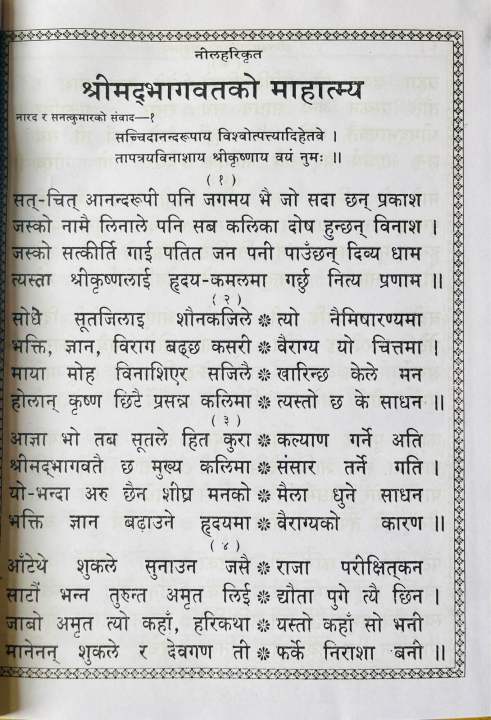 नीलहरिकृत
श्रीमद्भागवतको माहात्म्य
नारद र सनत्कुमारको संवाद—१
सच्चिदानन्दरूपाय विश्वोत्पत्त्यादिहेतवे ।
तापत्रयविनाशाय श्रीकृष्णाय वयं नुमः ॥
(१)
सत्-चित् आनन्दरूपी पनि जगमय भै जो सदा छन् प्रकाश
जस्को नामै लिनाले पनि सब कलिका दोष हुन्छन् विनाश ।
जस्को सत्कीर्ति गाई पतित जन पनी पाउँछन् दिव्य धाम
त्यस्ता श्रीकृष्णलाई हृदय-कमलमा गर्छु नित्य प्रणाम ॥
(२)
सोधे सूतजिलाइ शौनकजिले ❋ त्यो नैमिषारण्यमा
भक्ति, ज्ञान, विराग बढ्छ कसरी ❋ वैराग्य यो चित्तमा ।
माया मोह विनाशिएर सजिलै ❋ खारिन्छ केले मन
होलान् कृष्ण छिटै प्रसन्न कलिमा ❋ त्यस्तो छ के साधन ॥
(३)
आज्ञा भो तब सूतले हित कुरा ❋ कल्याण गर्ने अति
श्रीमद्भागवतै छ मुख्य कलिमा ❋ संसार तर्ने गति ।
यो-भन्दा अरु छैन शीघ्र मनको ❋ मेला धुने साधन
भक्ति ज्ञान बढाउने हृदयमा ❋ वैराग्यको कारण ॥
(४)
आँटेथे शुकले सुनाउन जसै ❋ राजा परीक्षित्‌कन
साटौं भन्न तुरुन्त अमृत लिई ❋ द्यौता पुगे त्यै छिन ।
जाबो अमृत त्यो कहाँ, हरिकथा ❋ यस्तो कहाँ सो भनी
मानेनन् शुकले र देवगण ती ❋ फर्के निराशा बनी ॥